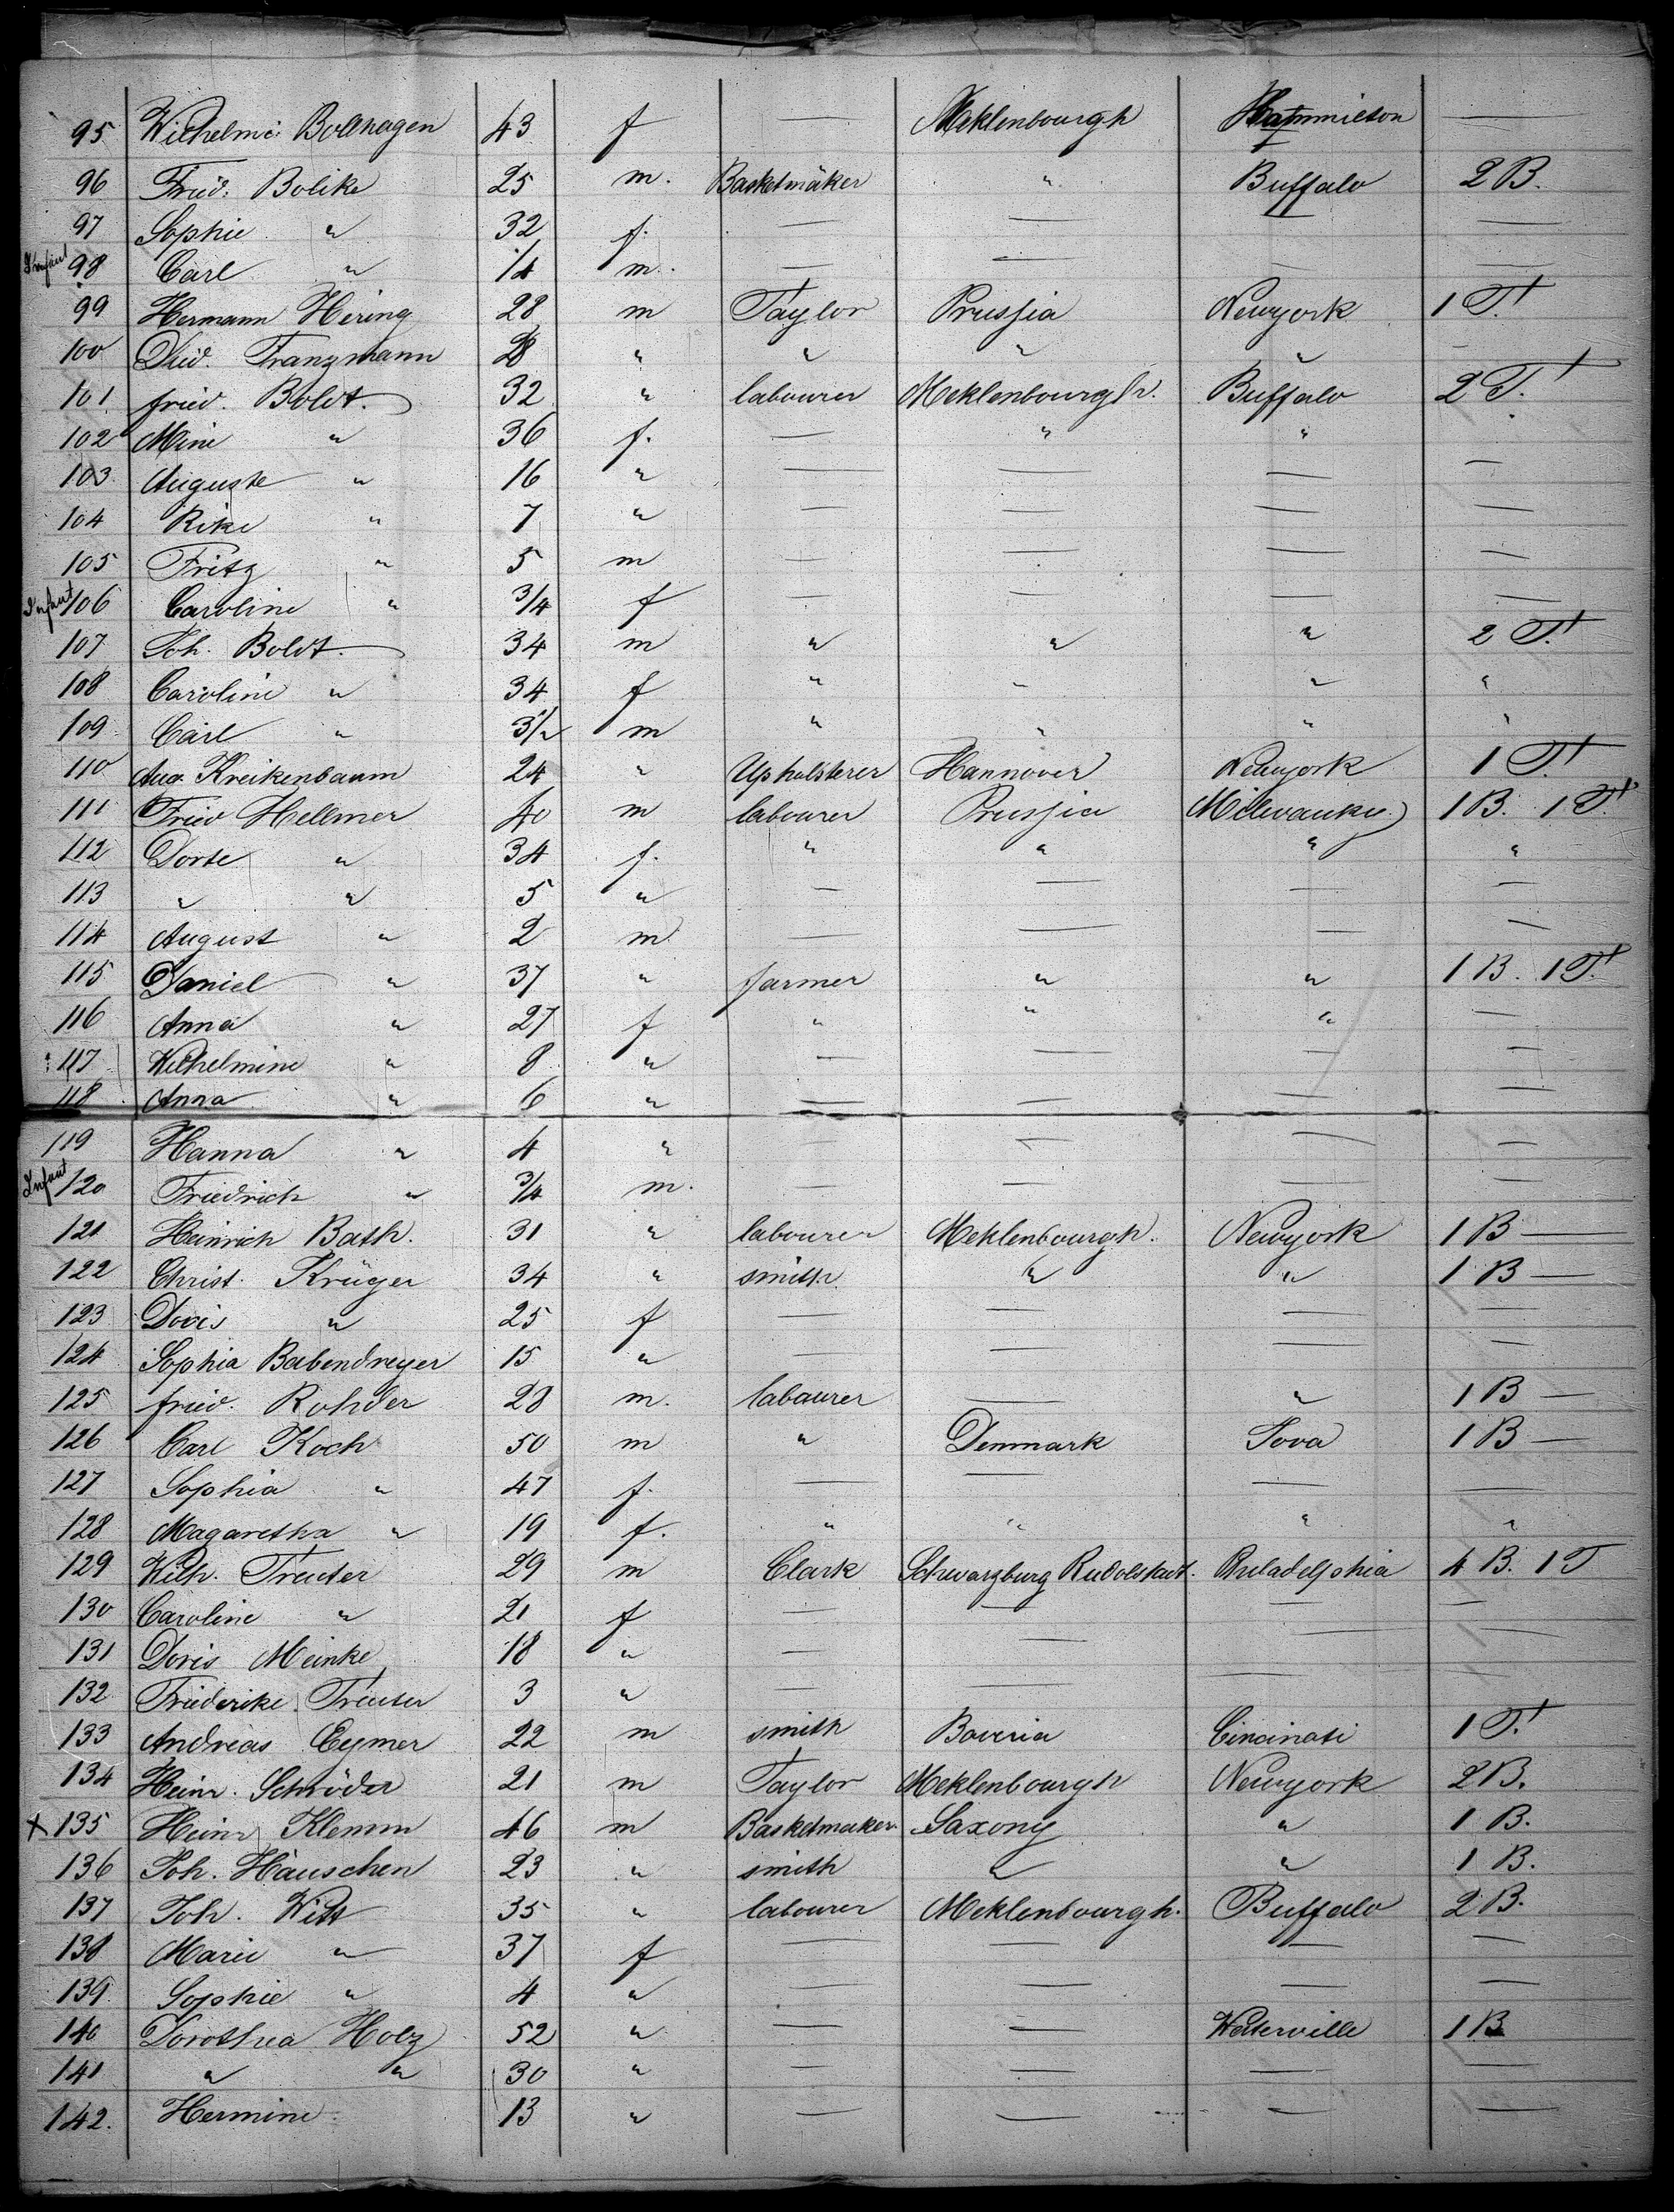 95 Wilhelmi: Bollhagen 43 f — Meklenbourgh Hammilton —
96 Fried: Bolike 25 m. Basketmäker " Buffalo 2 B.
97 Sophie " 32 f. — — — —
Infant 98 Carl " 1/4 m. — — — —
99 Hermann Hering 28 m Taylor Prussia Newyork 1 T.
100 Franzmann 28 " " " " —
101 fried. Boldt. 32 " labourer Meklenbourgh. Buffalo 2 T.
102 Mine " 36 f. — " " "
103. Auguste " 16 " — — — —
104 Rike " 7 " — — — —
105 Fritz " 5 m — — — —
Infant 106 Caroline " 3/4 f — — — —
107 Joh. Boldt. 34 m " " " 2 T.
108 Caroline " 34 f " " " "
109. Carl " 3 1/2 m " " " "
110 Aug. Kreikenbaum 24 " Upholsterer Hannover Newyork 1 T.
111 Fried Hellmer 40 m labourer Prussia Milwaukie 1 B. 1 T.
112 Dorte " 34 f. " " " "
113 " " 5 " — — — —
114 August " 2 m. — — — —
115 Daniel " 37 " farmer " " 1 B. 1 T.
116 Anna " 27 f " " " —
117 Wilhelmine " 8 " — — — —
118 Anna " 6 " — — — —
119 Hanna " 4 " — — — —
Infant 120 Friedrich " 3/4 m. — — — —
121 Heinrich Bath. 31 " labourer Meklenbourgh. Newyork 1 B —
122 Christ. Krüger 34 " smith " " 1 B —
123 Doris " 25 f — — — —
124 Sophia Babendreyer 15 " — — — —
125 fried. Rohder 28 m. labaurer — " 1 B —
126 Carl Koch 50 m " Denmark Iova 1 B —
127 Sophia " 47 f. — — — —
128 Magaretha " 19 f. " " " "
129 Wilh. Treuter 29 m Clark Schwarzburg Rudolstadt. Philadelphia 4 B. 1 T
130 Caroline " 21 f — — — —
131 Doris Meinke 18 " — — —
132 Friederike Treuter 3 " — — —
133 Andreas Eymer 22 m smith Baveria Cincinati 1 T.
134 Heinr. Schröder 21 m Taylor Meklenbourgh Newyork 2 B.
x 135 Heinr Klemm 46 m Basketmaker Saxony " 1 B.
136 Joh. Häuschen 23 " smith " " 1 B.
137 Joh. Witt 35 " labourer Meklenbourgh. Buffalo 2 B.
138 Marie " 37 f — — — —
139. Sophie " 4 " — — — —
140 Dorothea Holz 52 " — — Waterville 1 B
141 " " 30 " — — — —
142. Hermine 13 " — — — —